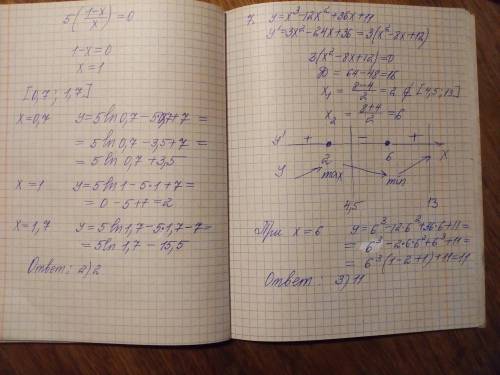 5(1-x/x)=0
1-x=0
x=1
[0,7; 1,7]
x=0,7 y=5ln0,7-5·0,7+7=
=5ln0,7-3,5+7=
=5ln0,7+3,5
x=1 y=5ln1-5·1+7=
=0-5+7=2
x=1,7 y=5ln1,7-5·1,7-7=
=5ln1,7-15,5
Ответ: 2)2
7. y=x³-12x²+36x+11
y'=3x²-24x+36=3(x²-8x+12)
3(x²-8x+12)=0
D=64-48=16
x₁=8-4/2=2 ∉ [4,5; 13]
x₂=8+4/2=6
y' + - +
2 6 x
y max min
4,5 13
При x=6 y=6³-12·6²+36·6+11=
=6³-2·6·6²+6³+11=
=6³(1-2+1)+11=11
Ответ: 3)11